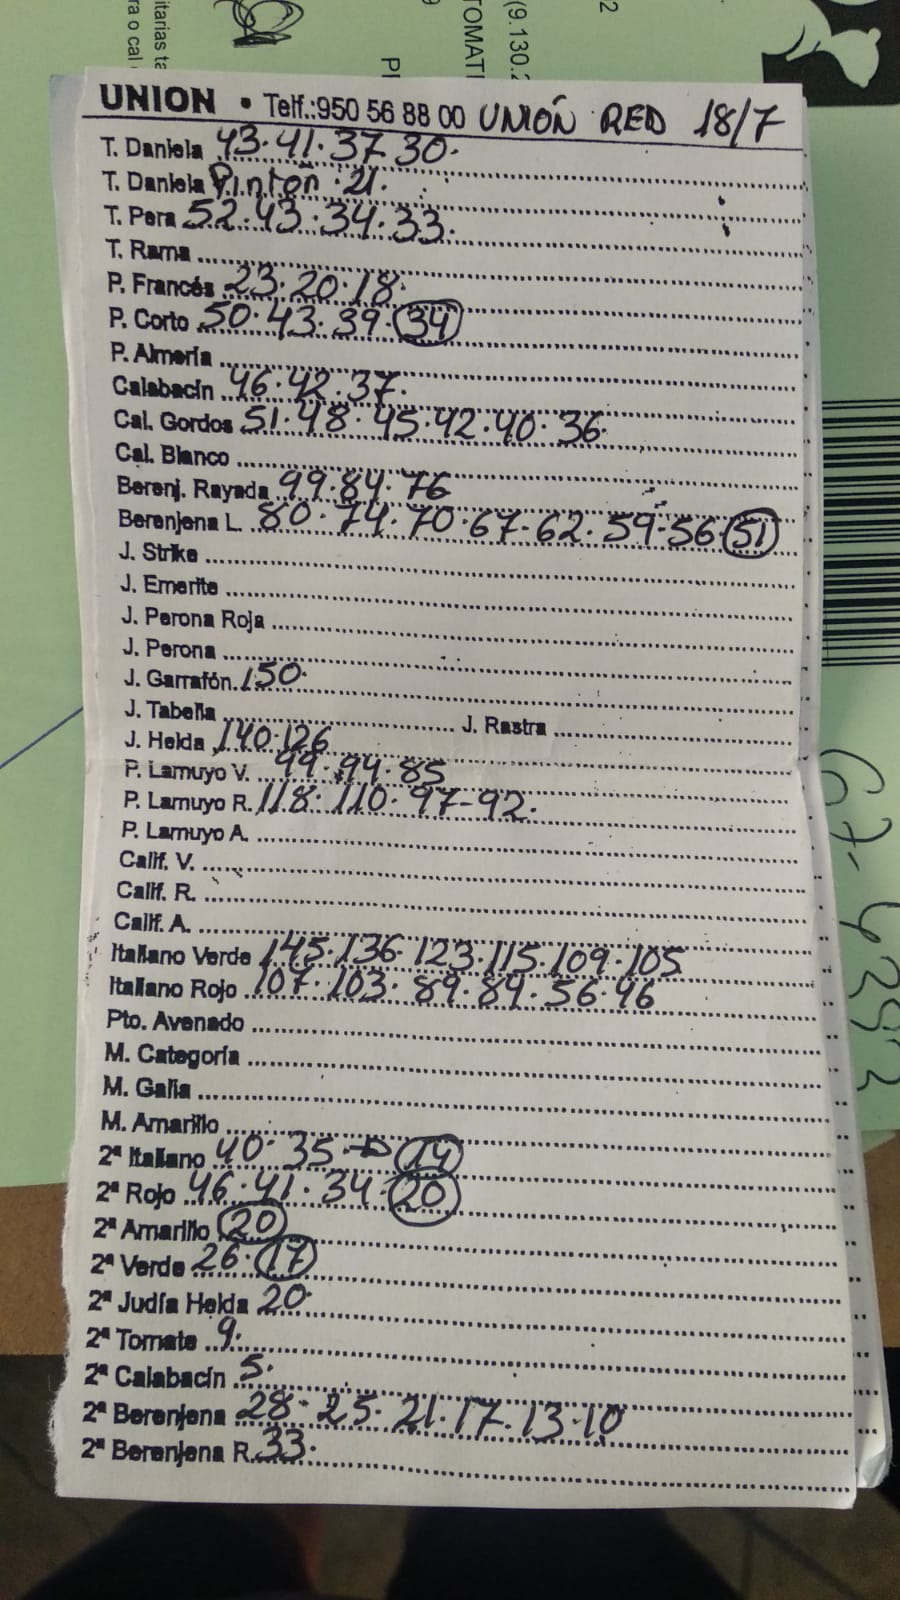 UNION • Telf.:950 56 88 00 UNIÓN RED 18/7
T. Daniela 43·41·37 30·
T. Daniela Pintón·21·
T. Pera 52·43·34·33·
T. Rama
P. Francés 23·20·18·
P. Corto 50·43·39·34
P. Almería
Calabacín 46·42·37·
Cal. Gordos 51·48·45·42·40·36·
Cal. Blanco
Berenj. Rayada 99·84·76
Berenjena L. 80·74·70·67-62·59·56·51
J. Strike
J. Emerite
J. Perona Roja
J. Perona
J. Garrafón 150·
J. Tabella J. Rastra
J. Helda 140·126
P. Lamuyo V. 99·94·85
P. Lamuyo R. 118·110·97-92·
P. Lamuyo A.
Calif. V.
Calif. R.
Calif. A.
Italiano Verde 145·136·123·115·109·105
Italiano Rojo 107·103·89·84·56·46
Pto. Avenado
M. Categoría
M. Galia
M. Amarillo
2ª Italiano 40·35→14
2ª Rojo 46·41·34·20
2ª Amarillo 20
2ª Verde 26·17
2ª Judía Helda 20·
2ª Tomate 9·
2ª Calabacín 5·
2ª Berenjena 28·25·21·17·13·10
2ª Berenjena R. 33·